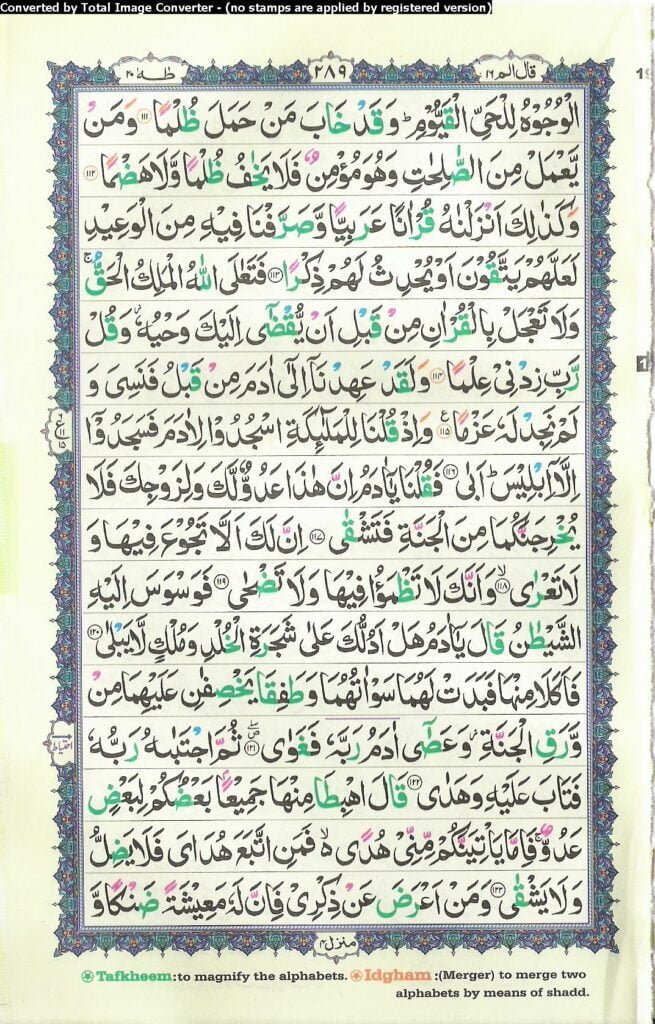 Converted by Total Image Converter - (no stamps are applied by registered version)
قال الم ١٦
٢٨٩
طٰهٰ ٢٠
الْوُجُوْهُ لِلْحَیِّ الْقَیُّوْمِ ؕ وَقَدْ خَابَ مَنْ حَمَلَ ظُلْمًا ﴿۱۱۱﴾ وَمَنْ
یَّعْمَلْ مِنَ الصّٰلِحٰتِ وَهُوَ مُؤْمِنٌ فَلَا یَخٰفُ ظُلْمًا وَّلَا هَضْمًا ﴿۱۱۲﴾
وَكَذٰلِكَ اَنْزَلْنٰهُ قُرْاٰنًا عَرَبِیًّا وَّصَرَّفْنَا فِیْهِ مِنَ الْوَعِیْدِ
لَعَلَّهُمْ یَتَّقُوْنَ اَوْ یُحْدِثُ لَهُمْ ذِكْرًا ﴿۱۱۳﴾ فَتَعٰلَی اللّٰهُ الْمَلِكُ الْحَقُّ ۚ
وَلَا تَعْجَلْ بِالْقُرْاٰنِ مِنْ قَبْلِ اَنْ یُّقْضٰۤی اِلَیْكَ وَحْیُهٗ ؗ وَقُلْ
رَّبِّ زِدْنِیْ عِلْمًا ﴿۱۱۴﴾ وَلَقَدْ عَهِدْنَاۤ اِلٰۤی اٰدَمَ مِنْ قَبْلُ فَنَسِیَ وَ
لَمْ نَجِدْ لَهٗ عَزْمًا ﴿۱۱۵﴾ وَاِذْ قُلْنَا لِلْمَلٰٓئِكَةِ اسْجُدُوْا لِاٰدَمَ فَسَجَدُوْۤا
اِلَّاۤ اِبْلِیْسَ ؕ اَبٰی ﴿۱۱۶﴾ فَقُلْنَا یٰۤاٰدَمُ اِنَّ هٰذَا عَدُوٌّ لَّكَ وَلِزَوْجِكَ فَلَا
یُخْرِجَنَّكُمَا مِنَ الْجَنَّةِ فَتَشْقٰی ﴿۱۱۷﴾ اِنَّ لَكَ اَلَّا تَجُوْعَ فِیْهَا وَ
لَا تَعْرٰی ﴿۱۱۸﴾ ۙ وَاَنَّكَ لَا تَظْمَؤُا فِیْهَا وَلَا تَضْحٰی ﴿۱۱۹﴾ فَوَسْوَسَ اِلَیْهِ
الشَّیْطٰنُ قَالَ یٰۤاٰدَمُ هَلْ اَدُلُّكَ عَلٰی شَجَرَةِ الْخُلْدِ وَمُلْكٍ لَّا یَبْلٰی ﴿۱۲۰﴾
فَاَكَلَا مِنْهَا فَبَدَتْ لَهُمَا سَوْاٰتُهُمَا وَطَفِقَا یَخْصِفٰنِ عَلَیْهِمَا مِنْ
وَّرَقِ الْجَنَّةِ ؗ وَعَصٰۤی اٰدَمُ رَبَّهٗ فَغَوٰی ﴿۱۲۱﴾ ثُمَّ اجْتَبٰهُ رَبُّهٗ
فَتَابَ عَلَیْهِ وَهَدٰی ﴿۱۲۲﴾ قَالَ اهْبِطَا مِنْهَا جَمِیْعًۢا بَعْضُكُمْ لِبَعْضٍ
عَدُوٌّ ۚ فَاِمَّا یَاْتِیَنَّكُمْ مِّنِّیْ هُدًی ۙ۬ فَمَنِ اتَّبَعَ هُدَایَ فَلَا یَضِلُّ
وَلَا یَشْقٰی ﴿۱۲۳﴾ وَمَنْ اَعْرَضَ عَنْ ذِكْرِیْ فَاِنَّ لَهٗ مَعِیْشَةً ضَنْكًا وَّ
احتیاط
منزل ۴
Tafkheem:to magnify the alphabets. Idgham :(Merger) to merge two
alphabets by means of shadd.